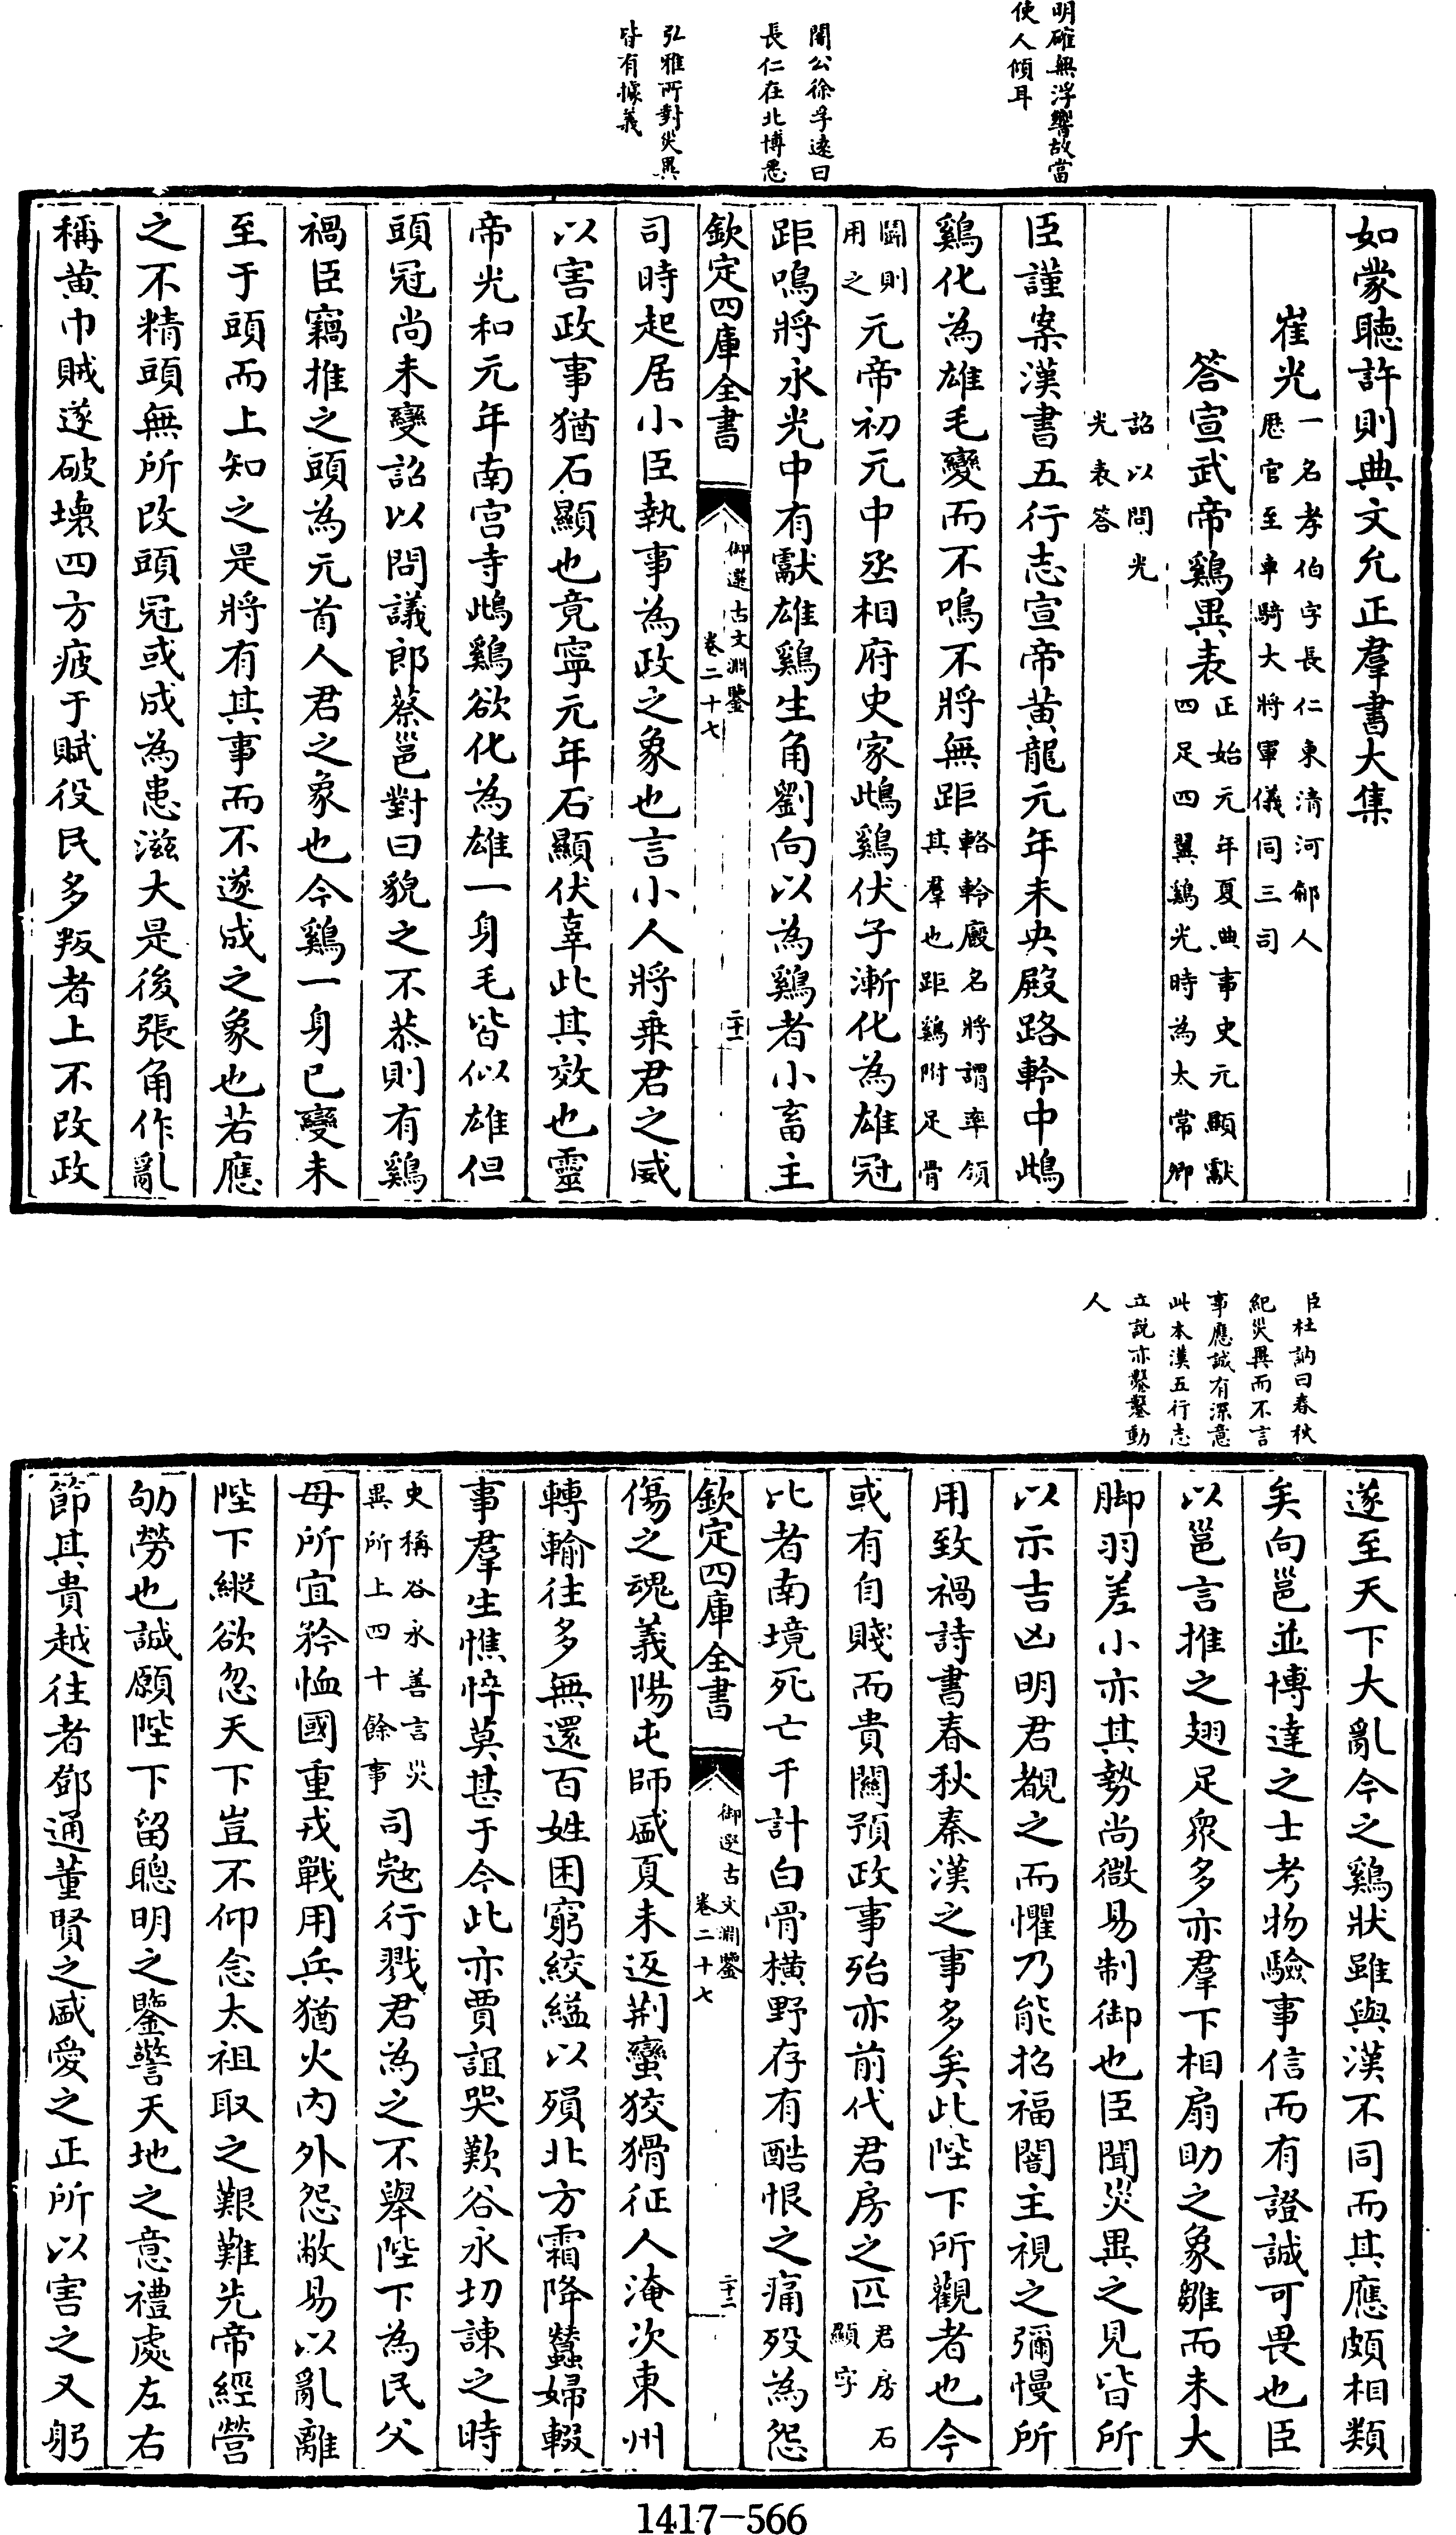 明確無浮響故當
使人傾耳
閣公徐孚遠曰
長仁在北博悉
弘雅所對災異
皆有據義
如蒙聽許則典文允正羣書大集
崔光
一名孝伯字長仁東清河鄃人
歷官至車騎大將軍儀同三司
答宣武帝鷄異表
正始元年夏典事史元顯獻
四足四翼鷄光時為太常卿
詔以問光
光表答
臣謹案漢書五行志宣帝黄龍元年未央殿路軨中雌
鷄化為雄毛變而不鳴不將無距
輅軨廄名將謂率領
其羣也距鷄附足骨
鬬則
用之
元帝初元中丞相府史家雌鷄伏子漸化為雄冠
距鳴將永光中有獻雄鷄生角劉向以為鷄者小畜主
欽定四庫全書
御選古文淵鑒
卷二十七
二十一
司時起居小臣執事為政之象也言小人將乗君之威
以害政事猶石顯也竟寧元年石顯伏辜此其效也靈
帝光和元年南宫寺雌鷄欲化為雄一身毛皆似雄但
頭冠尚未變詔以問議郎蔡邕對曰貌之不恭則有鷄
禍臣竊推之頭為元首人君之象也今鷄一身已變未
至于頭而上知之是將有其事而不遂成之象也若應
之不精頭無所改頭冠或成為患滋大是後張角作亂
稱黄巾賊遂破壞四方疲于賦役民多叛者上不改政
臣杜訥曰春秋
紀災異而不言
事應誠有深意
此本漢五行志
立説亦鑿鑿動
人
遂至天下大亂今之鷄狀雖與漢不同而其應頗相類
矣向邕並博達之士考物驗事信而有證誠可畏也臣
以邕言推之翅足衆多亦羣下相扇助之象雛而未大
脚羽差小亦其勢尚微易制御也臣聞災異之見皆所
以示吉凶明君覩之而懼乃能招福闇主視之彌慢所
用致禍詩書春秋秦漢之事多矣此陛下所觀者也今
或有自賤而貴關預政事殆亦前代君房之匹
君房石
顯字
比者南境死亡千計白骨横野存有酷恨之痛殁為怨
欽定四庫全書
御選古文淵鑒
卷二十七
二十二
傷之魂義陽屯師盛夏未返荆蠻狡猾征人淹次東州
轉輸往多無還百姓困窮絞縊以殞北方霜降蠶婦輟
事羣生憔悴莫甚于今此亦賈誼哭歎谷永切諫之時
史稱谷永善言災
異所上四十餘事
司寇行戮君為之不舉陛下為民父
母所宜矜恤國重戎戰用兵猶火内外怨敝易以亂離
陛下縱欲忽天下豈不仰念太祖取之艱難先帝經營
劬勞也誠願陛下留聰明之鑒警天地之意禮處左右
節其貴越往者鄧通董賢之盛愛之正所以害之又躬
1417-566